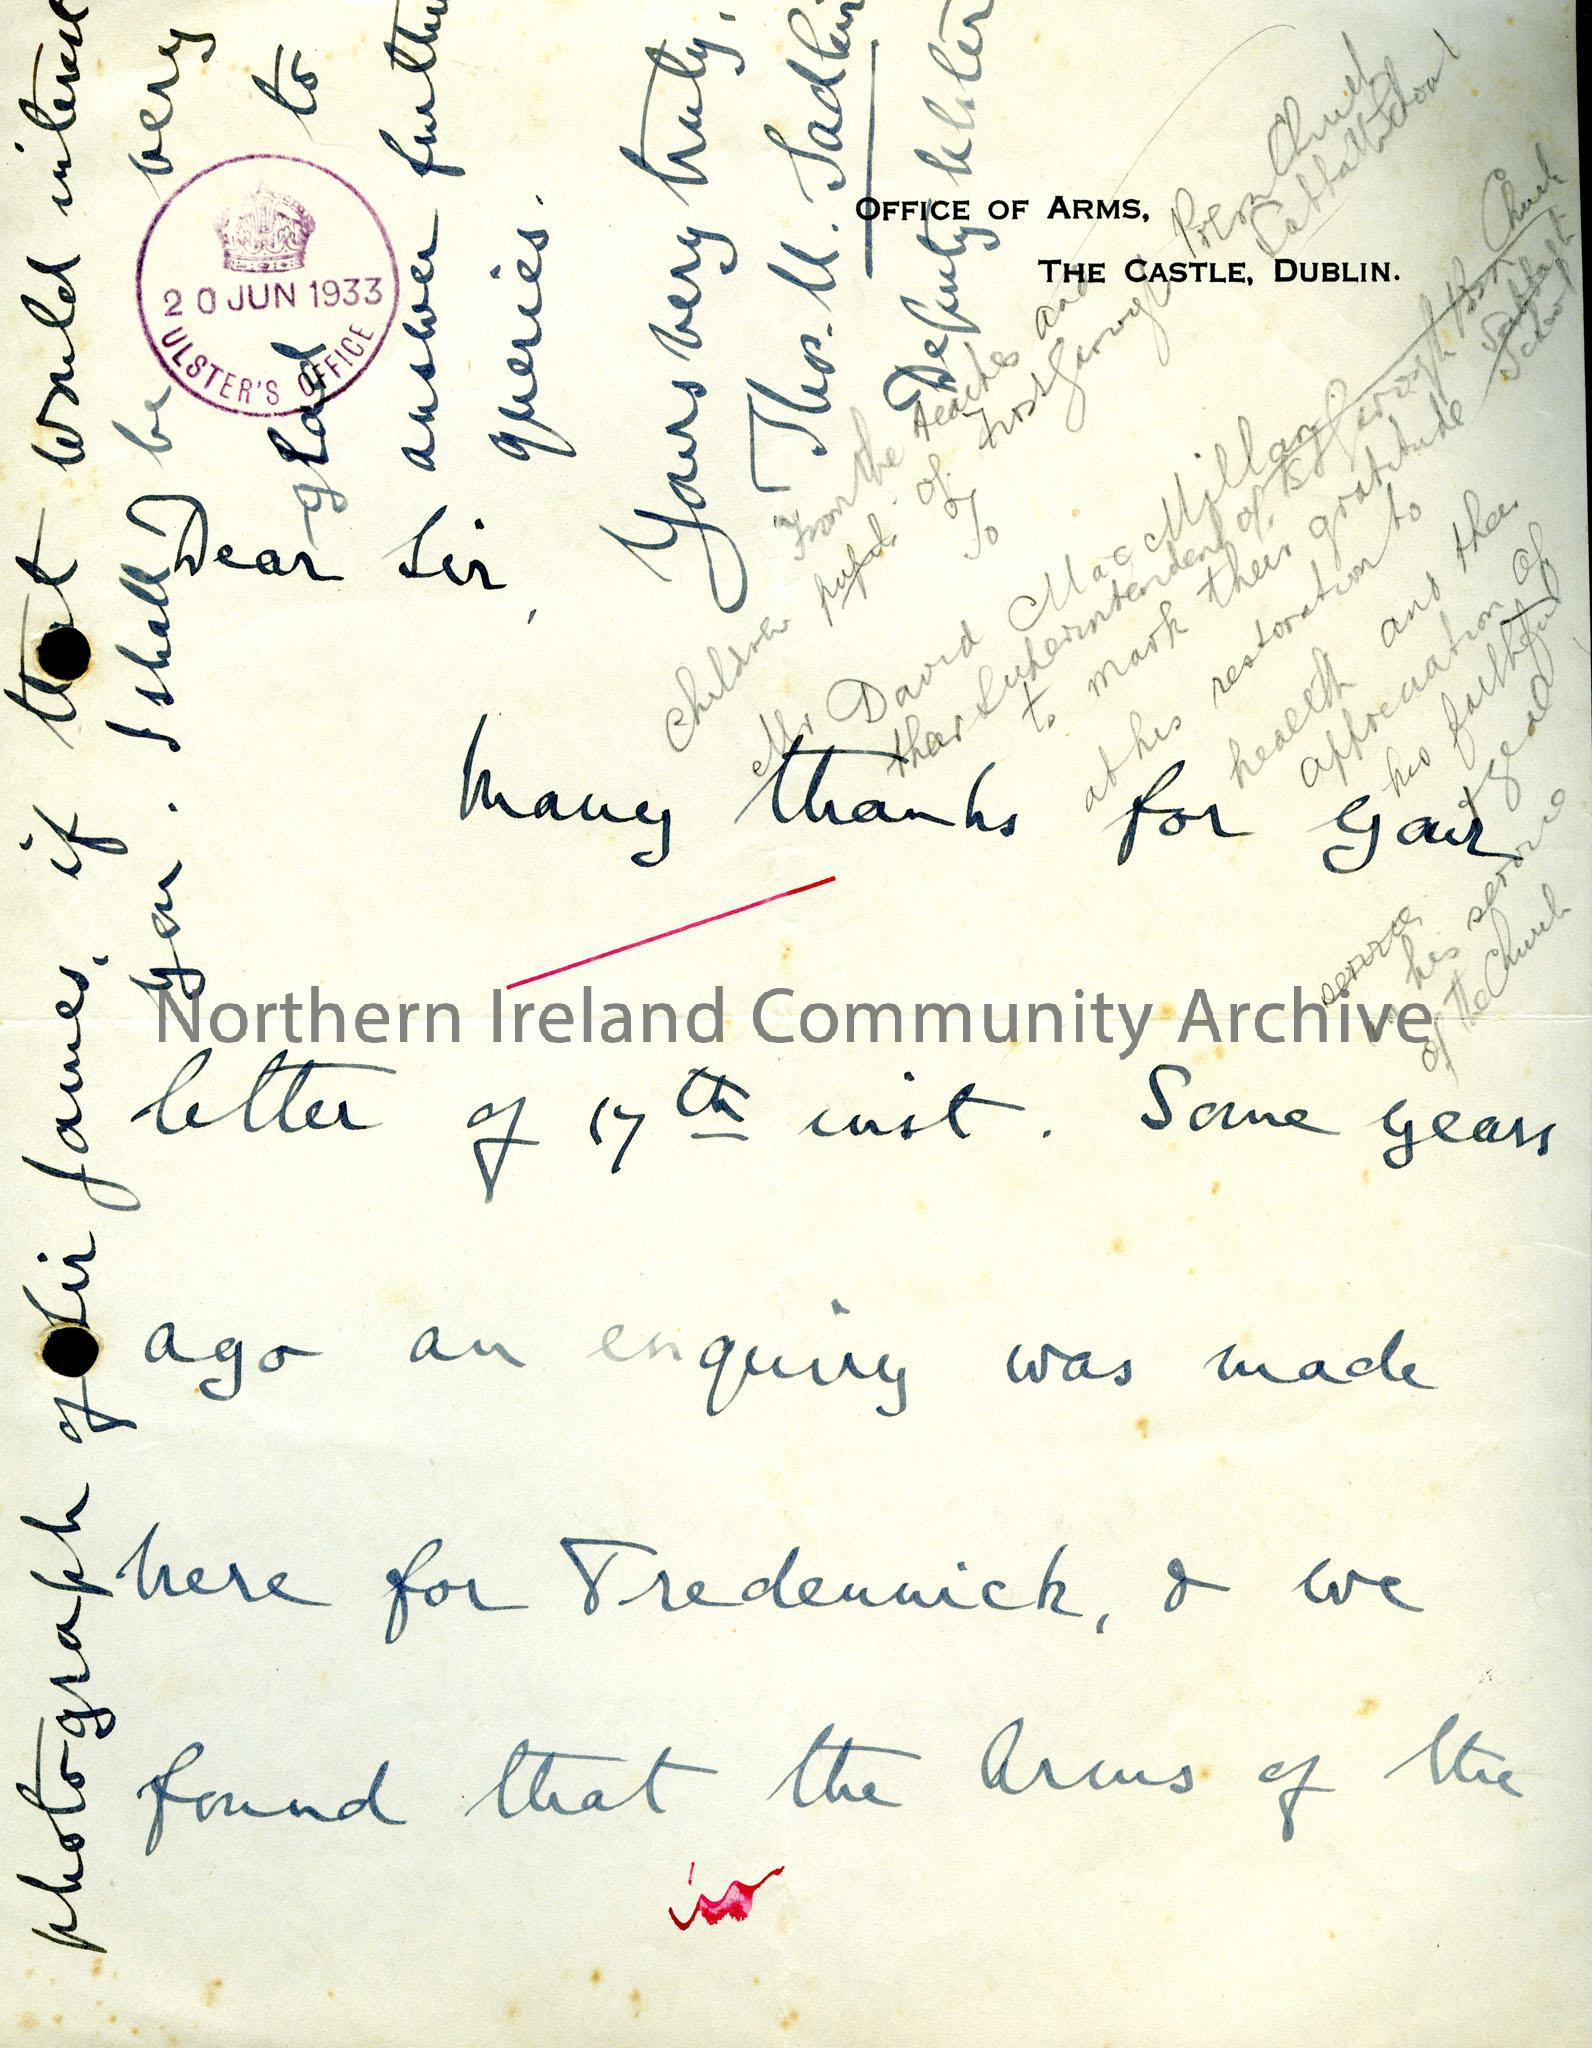 OFFICE OF ARMS,
THE CASTLE, DUBLIN.
20 JUN 1933
ULSTER'S OFFICE
Dear Sir,
Many thanks for your
letter of 17th inst. Some years
ago an enquiry was made
here for Tredennick, & we
found that the Arms of the
photograph of Sir James, if that would interest
you. I shall be very
glad to
answer further
queries.
Yours very truly,
Thos. U. Sadleir
Deputy Ulster
From the teachers and
children pupils of First Garvagh Presn Church
Sabbath School
To
Mr David MacMillan
their Superintendent of 1st Garvagh Pres. Church
Sabbath
School
to mark their gratitude
at his restoration to
health and their
appreciation of
his faithful
& zeal
service
his service
of the Church
Northern Ireland Community Archive